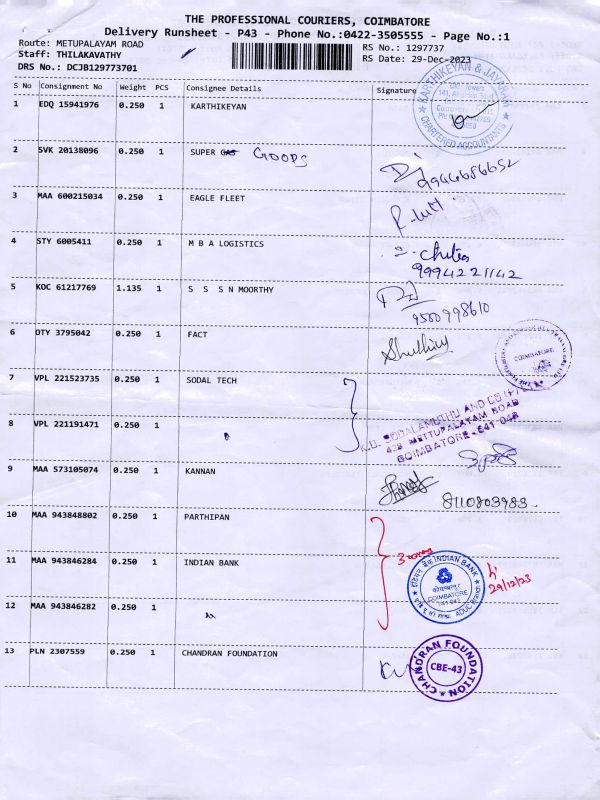 THE PROFESSIONAL COURIERS, COIMBATORE
Delivery Runsheet - P43 - Phone No.:0422-3505555 - Page No.:1
Route: METUPALAYAM ROAD RS No.: 1297737
Staff: THILAKAVATHY RS Date: 29-Dec-2023
DRS No.: DCJB129773701
S No Consignment No Weight PCS Consignee Details Signature
KARTHIKEYAN & JAYARAM
CHARTERED ACCOUNTANTS
1 EDQ 15941976 0.250 1 KARTHIKEYAN
2 SVK 20138096 0.250 1 SUPER GAS GOODS
9944686652
3 MAA 600215034 0.250 1 EAGLE FLEET
4 STY 6005411 0.250 1 M B A LOGISTICS
9994221142
5 KOC 61217769 1.135 1 S S S N MOORTHY
9500998610
6 OTY 3795042 0.250 1 FACT
COIMBATORE
7 VPL 221523735 0.250 1 SODAL TECH
SODALAMUTHU AND CO
428 METTUPALAYAM ROAD
COIMBATORE - 641-043
8 VPL 221191471 0.250 1 "
9 MAA 573105074 0.250 1 KANNAN
8110803983
10 MAA 943848802 0.250 1 PARTHIPAN
11 MAA 943846284 0.250 1 INDIAN BANK
3
इंडियन बैंक INDIAN BANK
कोयम्बत्तूर
COIMBATORE
641 043
ADUC Branch
29/12/23
12 MAA 943846282 0.250 1 "
13 PLN 2307559 0.250 1 CHANDRAN FOUNDATION
CHANDRAN FOUNDATION
CBE-43